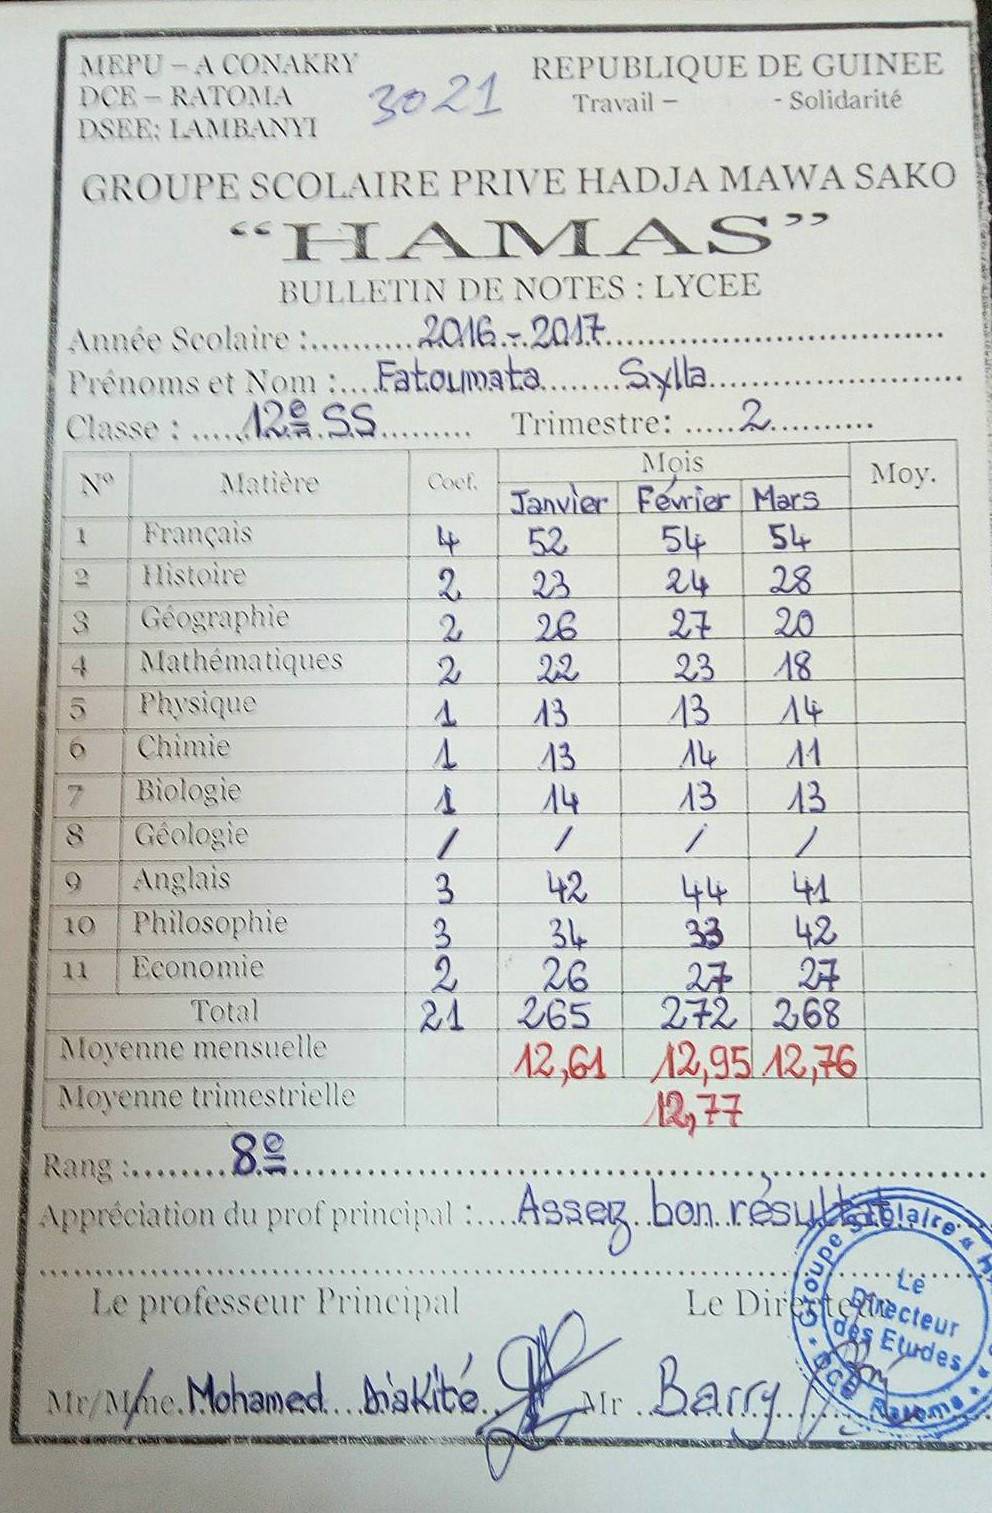 MEPU – A CONAKRY
DCE – RATOMA
DSEE: LAMBANYI
3021
REPUBLIQUE DE GUINEE
Travail – - Solidarité
GROUPE SCOLAIRE PRIVE HADJA MAWA SAKO
“HAMAS”
BULLETIN DE NOTES : LYCEE
Année Scolaire :..........2016-2017..............................
Prénoms et Nom :....Fatoumata........Sylla..............................
Classe : .....12e SS......... Trimestre: .....2..........
N° Matière Coef. Mois Moy.
Janvier Février Mars
1 Français 4 52 54 54
2 Histoire 2 23 24 28
3 Géographie 2 26 27 20
4 Mathématiques 2 22 23 18
5 Physique 1 13 13 14
6 Chimie 1 13 14 11
7 Biologie 1 14 13 13
8 Géologie / / / /
9 Anglais 3 42 44 41
10 Philosophie 3 34 33 42
11 Economie 2 26 27 27
Total 21 265 272 268
Moyenne mensuelle 12,61 12,95 12,76
Moyenne trimestrielle 12,77
Rang :........8e..............................
Appréciation du prof principal :....Assez bon résultat
Le professeur Principal Le Directeur
Mr/Mme.Mohamed...Diakité.. Mr ..Barry
Groupe Scolaire «
Le
Directeur
des Etudes
DCE Ratoma